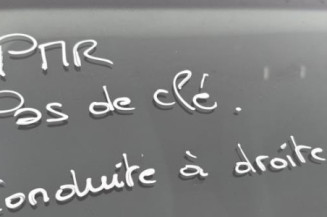 PMR
Pas de clé.
Conduite à droite